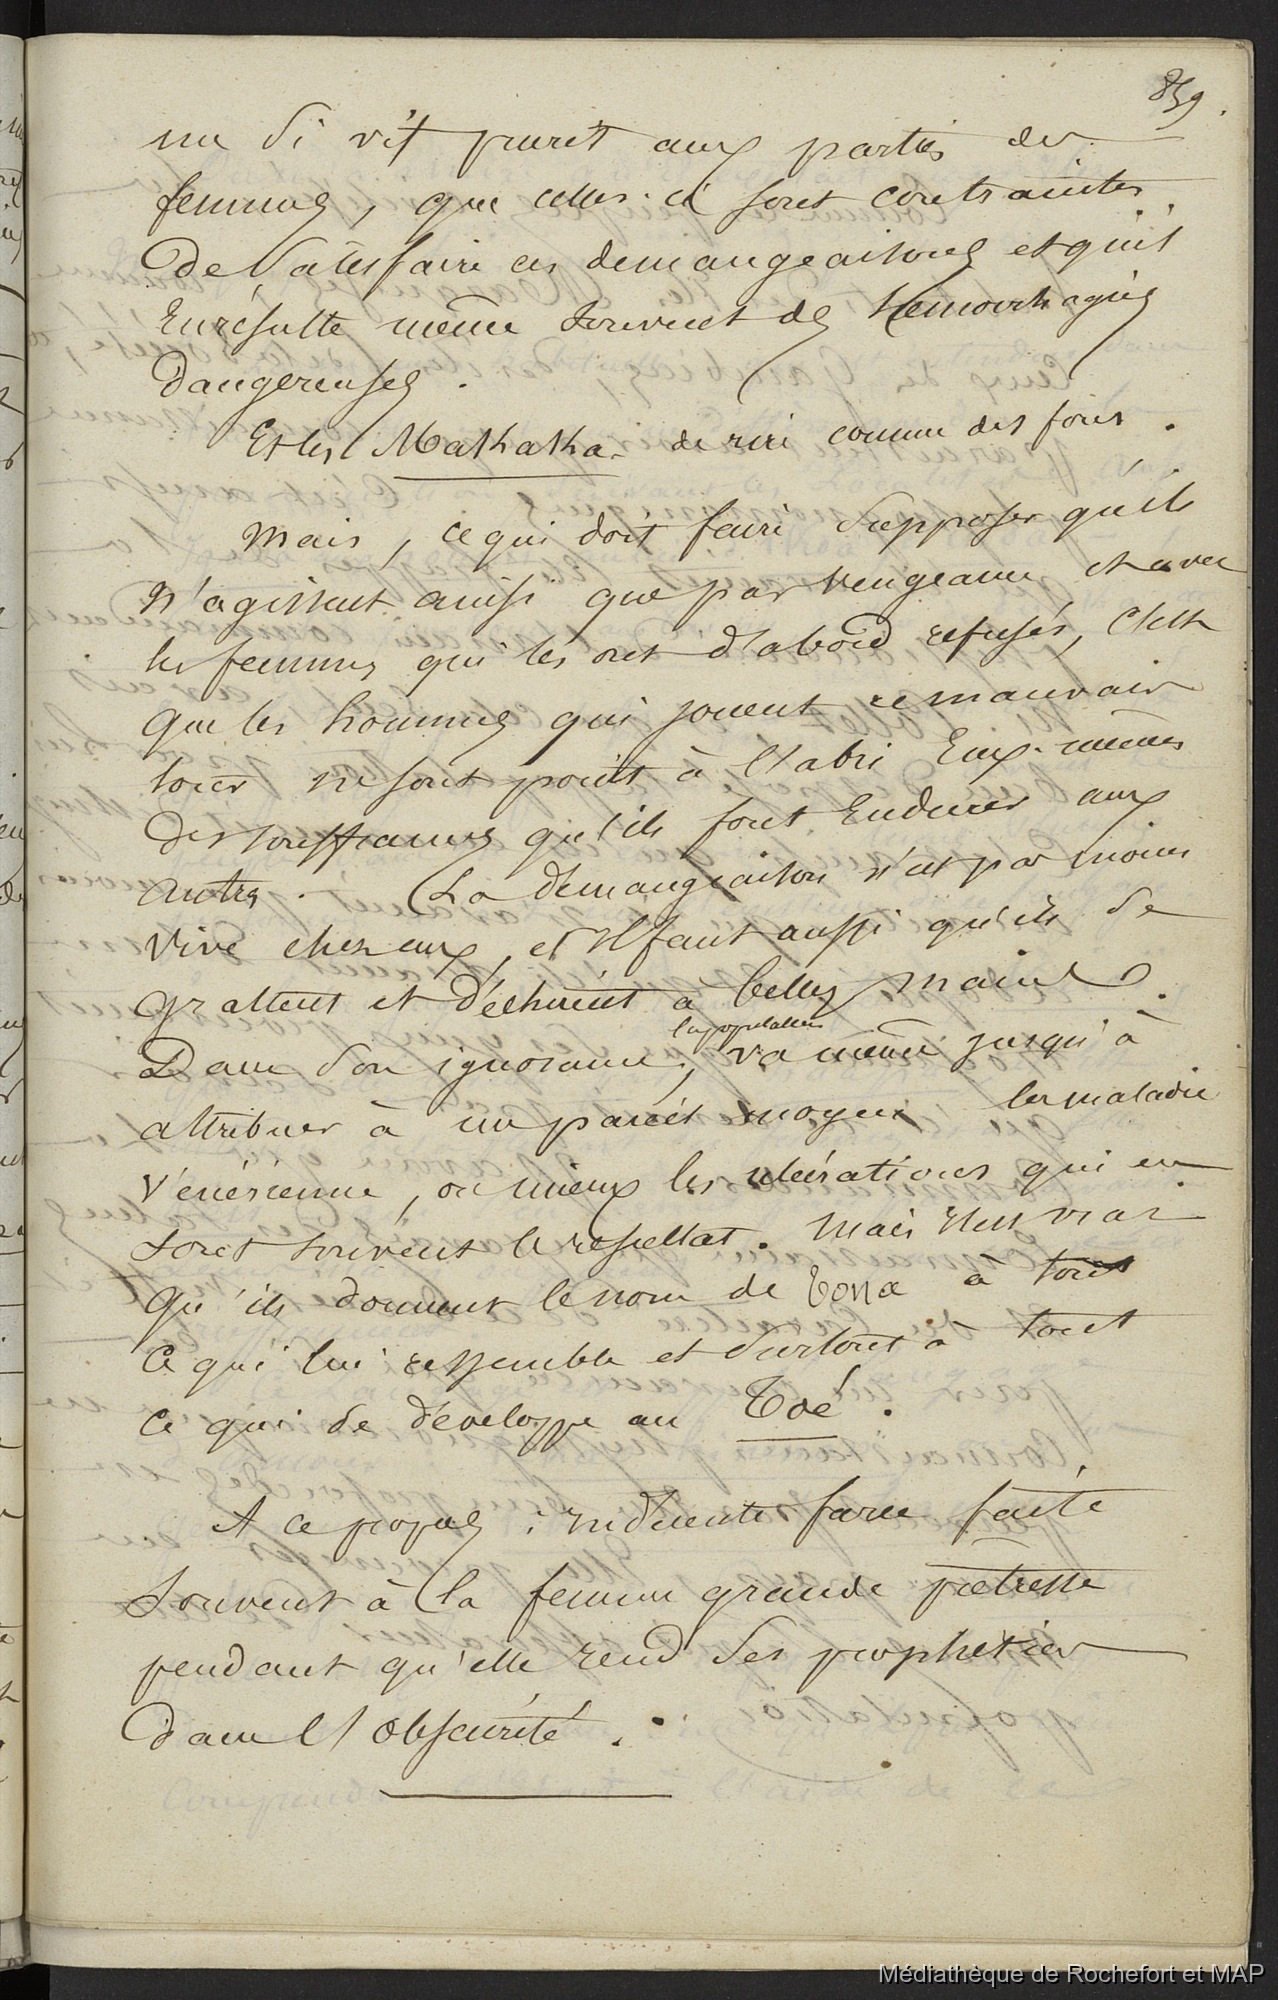 859.
un si vif prurit aux parties des
femmes, que celles-ci sont contraintes
de satisfaire ces demangeaisons et qu'il
en résulte même souvent des hemorrhagies
dangereuses.
Et les Mathatha de rire comme des fous.
Mais, ce qui doit faire supposer qu'ils
n'agissent ainsi que par vengeance et avec
les femmes qui les ont d'abord refusés, c'est
que les hommes qui jouent ce mauvais
tour ne sont point à l'abri Eux-mêmes
des souffrances qu'ils font Endurer aux
autres. La démangeaison n'est pas moins
vive chez eux, et il faut aussi qu'ils se
grattent et déchirent à belles mains.
la population
Dans son ignorance, va même jusqu'à
attribuer à un pareil moyen les maladie
vénérienne, ou mieux les ulcérations qui en
sont souvent le resultat. Mais il est vrai
qu'ils donnent le nom de tona à tout
ce qui lui ressemble et surtout à tout
ce qui se développe au Toé.
A ce propos : indécente farce faite
souvent à la femme grande prêtresse
pendant qu'elle rend ses prophéties
dans l'obscurité.
Médiathèque de Rochefort et MAP